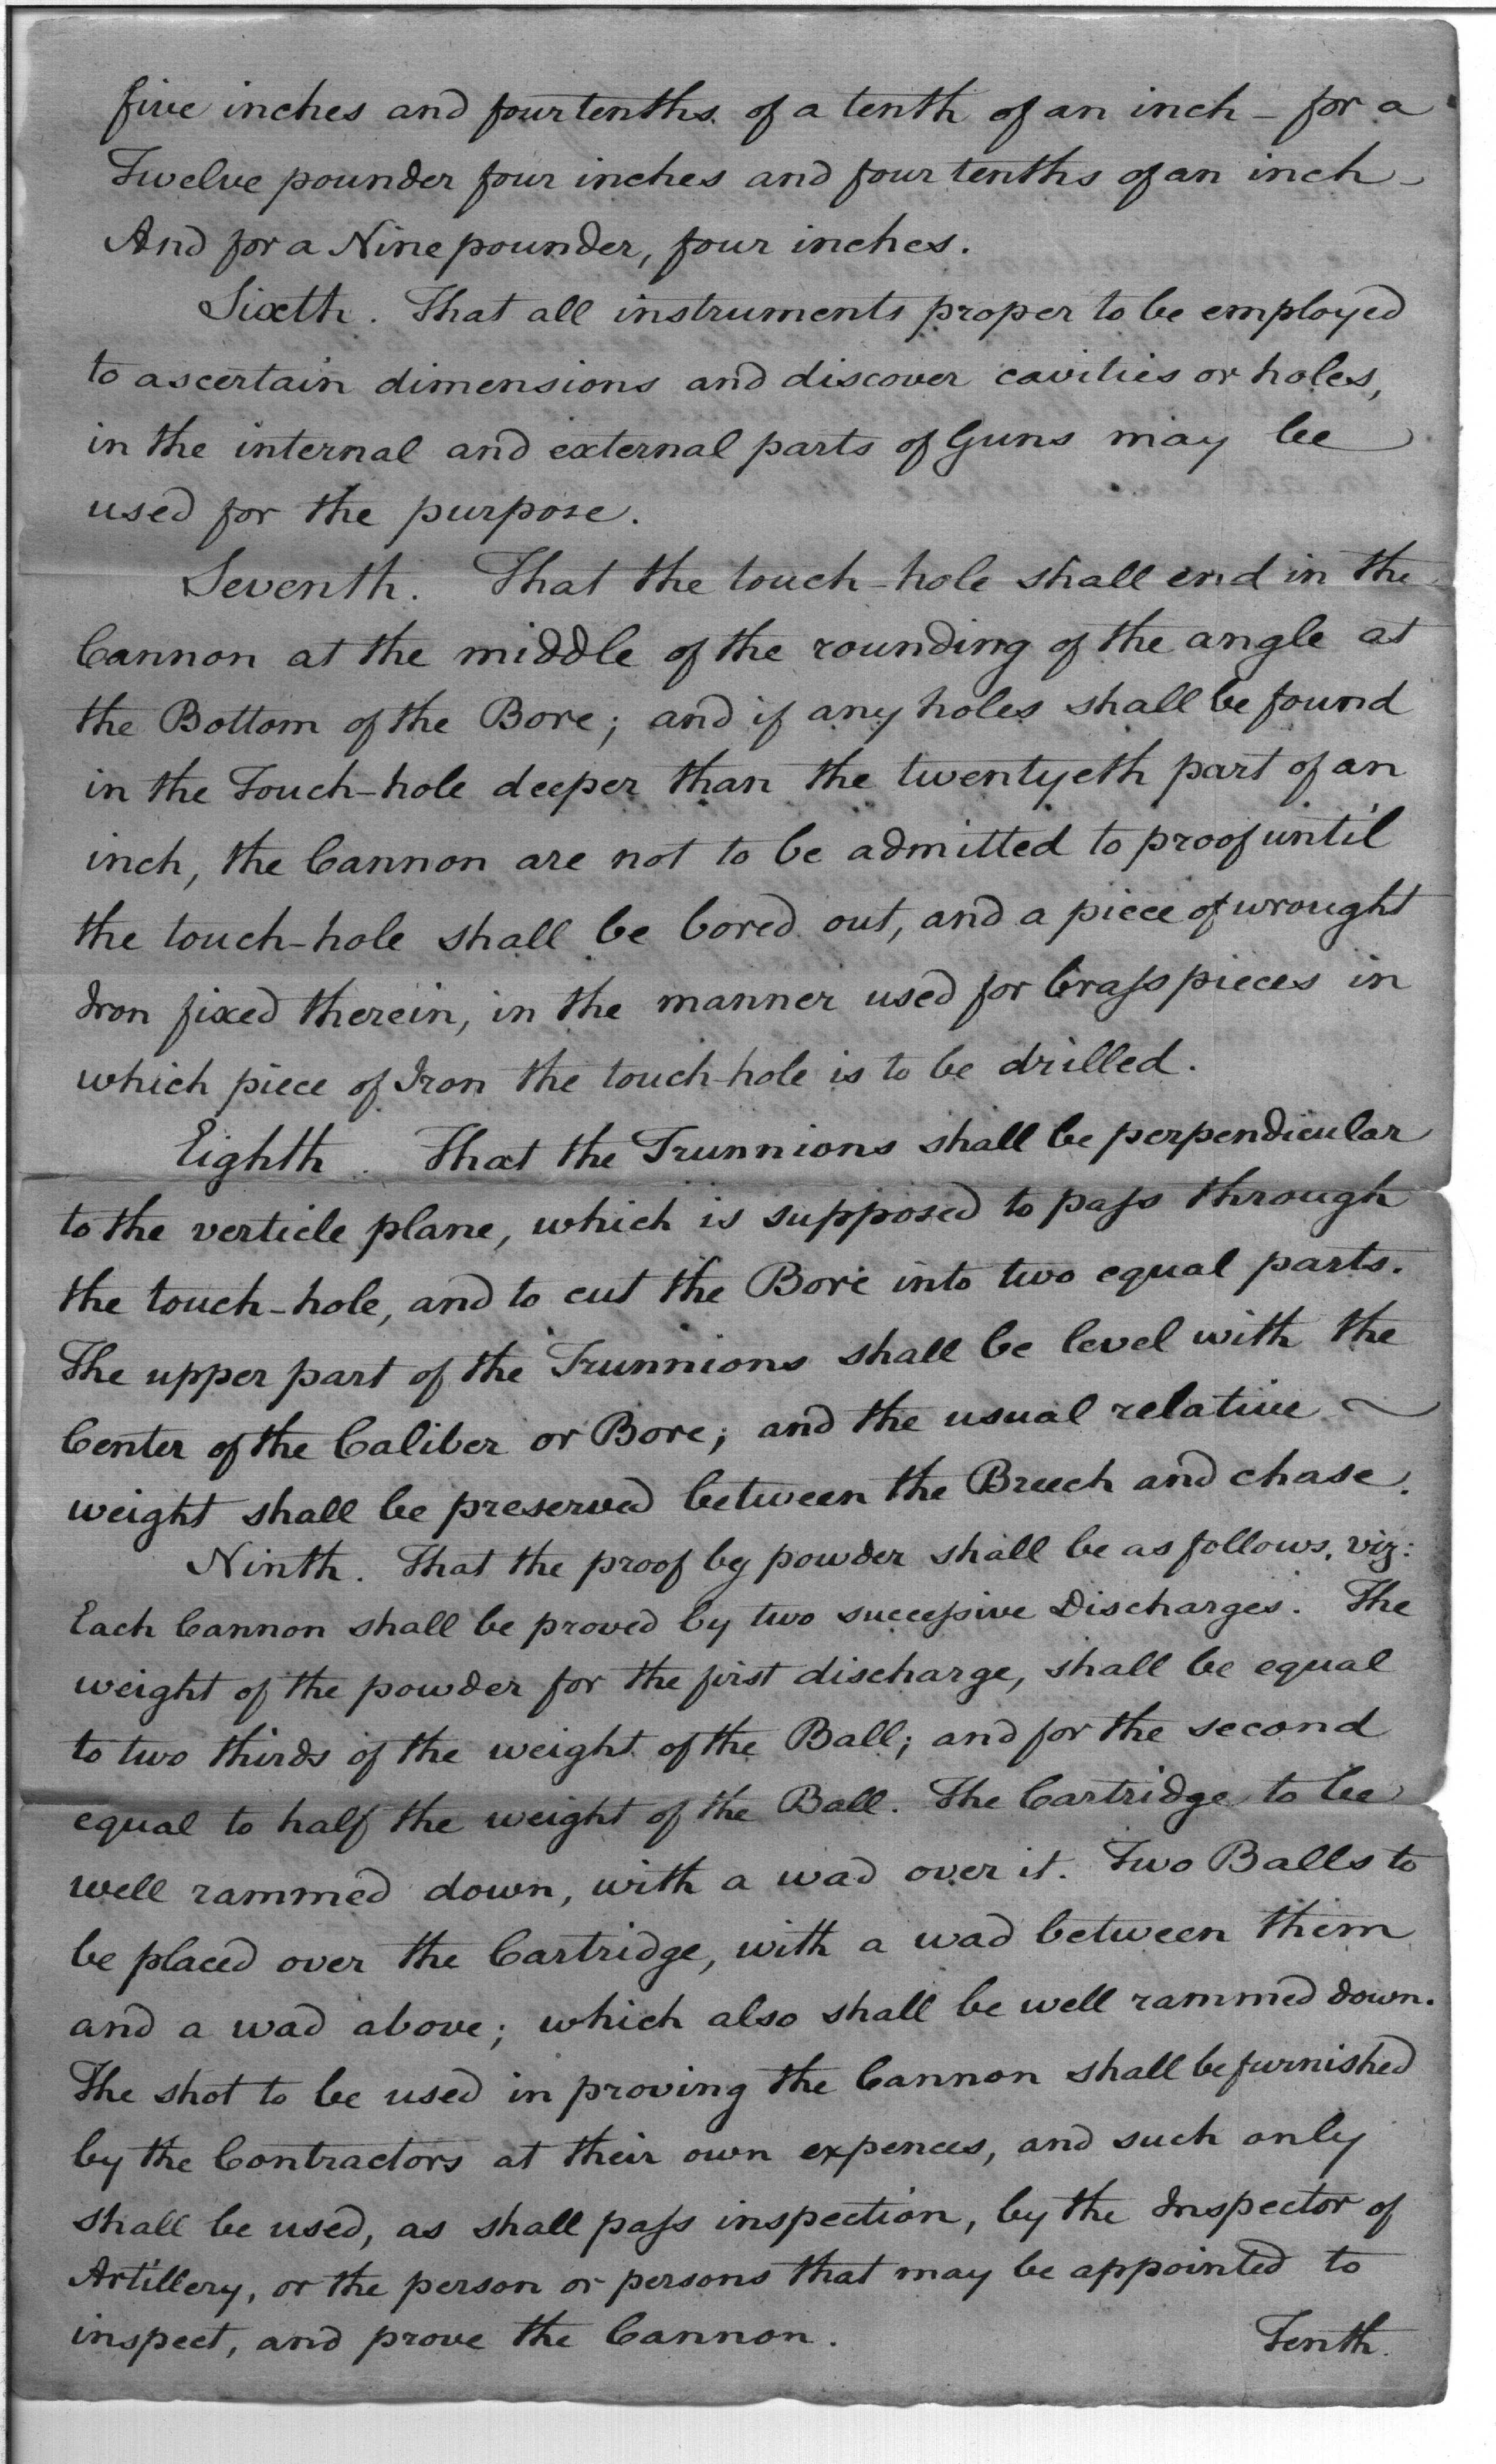 five inches and four tenths of a tenth of an inch – for a
Twelve pounder four inches and four tenths of an inch –
And for a Nine pounder, four inches.
Sixth. That all instruments proper to be employed
to ascertain dimensions and discover cavities or holes,
in the internal and external parts of Guns may be
used for the purpose.
Seventh. That the touch-hole shall end in the
Cannon at the middle of the rounding of the angle at
the Bottom of the Bore; and if any holes shall be found
in the Touch-hole deeper than the twentyeth part of an
inch, the Cannon are not to be admitted to proof until
the touch-hole shall be bored out, and a piece of wrought
Iron fixed therein, in the manner used for brass pieces in
which piece of Iron the touch-hole is to be drilled.
Eighth. That the Trunnions shall be perpendicular
to the verticle plane, which is supposed to pass through
the touch-hole, and to cut the Bore into two equal parts.
The upper part of the Trunnions shall be level with the
Center of the Caliber or Bore; and the usual relative ~
weight shall be preserved between the Breech and chase.
Ninth. That the proof by powder shall be as follows, viz:
Each Cannon shall be proved by two successive Discharges. The
weight of the powder for the first discharge, shall be equal
to two thirds of the weight of the Ball; and for the second
equal to half the weight of the Ball. The Cartridge to be
well rammed down, with a wad over it. Two Balls to
be placed over the Cartridge, with a wad between them
and a wad above; which also shall be well rammed down.
The shot to be used in proving the Cannon shall be furnished
by the Contractors at their own expences, and such only
shall be used, as shall pass inspection, by the Inspector of
Artillery, or the person or persons that may be appointed to
inspect, and prove the Cannon.
Tenth.